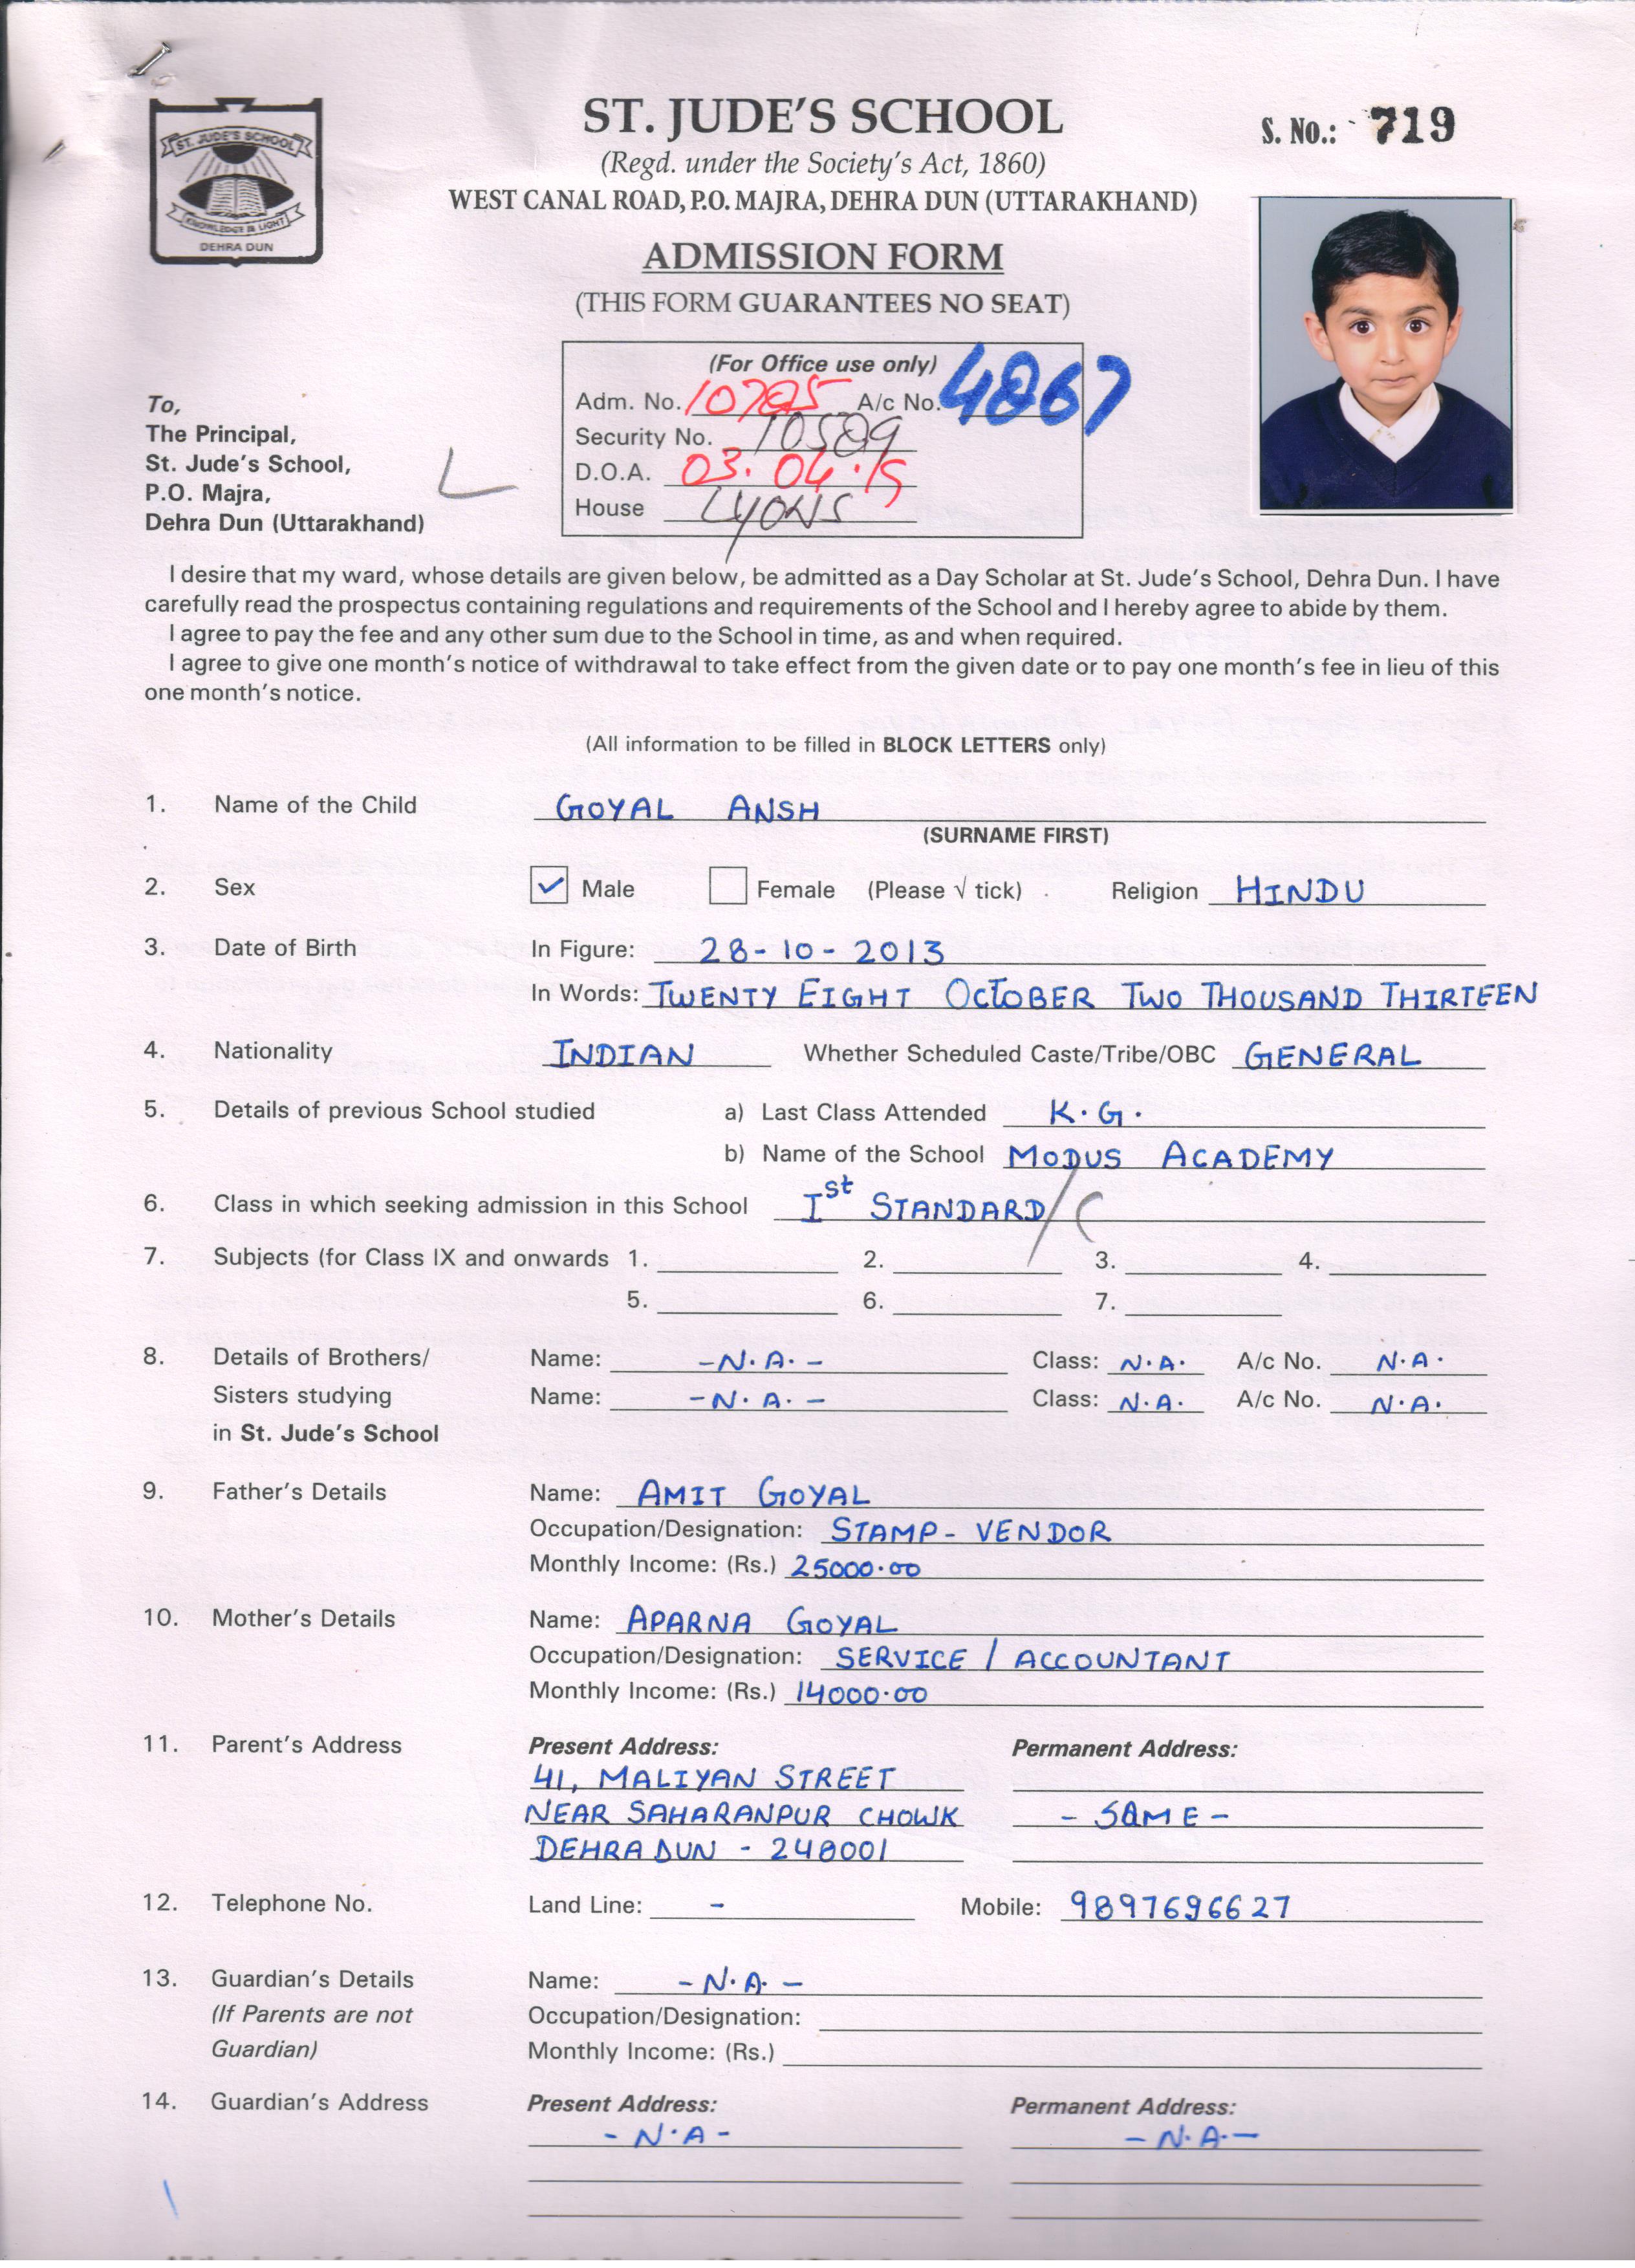 ST. JUDE'S SCHOOL
KNOWLEDGE IS LIGHT
DEHRA DUN
ST. JUDE'S SCHOOL
(Regd. under the Society's Act, 1860)
WEST CANAL ROAD, P.O. MAJRA, DEHRA DUN (UTTARAKHAND)
S. No.: 719
ADMISSION FORM
(THIS FORM GUARANTEES NO SEAT)
(For Office use only)
Adm. No. A/c No. 4867
Security No. 10589
D.O.A. 03.04.19
House LYONS
To,
The Principal,
St. Jude's School,
P.O. Majra,
Dehra Dun (Uttarakhand)
L
I desire that my ward, whose details are given below, be admitted as a Day Scholar at St. Jude's School, Dehra Dun. I have
carefully read the prospectus containing regulations and requirements of the School and I hereby agree to abide by them.
I agree to pay the fee and any other sum due to the School in time, as and when required.
I agree to give one month's notice of withdrawal to take effect from the given date or to pay one month's fee in lieu of this
one month's notice.
(All information to be filled in BLOCK LETTERS only)
1. Name of the Child GOYAL ANSH
(SURNAME FIRST)
2. Sex ✓ Male Female (Please √ tick) Religion HINDU
3. Date of Birth In Figure: 28-10-2013
In Words: TWENTY EIGHT OCTOBER TWO THOUSAND THIRTEEN
4. Nationality INDIAN Whether Scheduled Caste/Tribe/OBC GENERAL
5. Details of previous School studied a) Last Class Attended K.G.
b) Name of the School MODUS ACADEMY
6. Class in which seeking admission in this School Ist STANDARD/C
7. Subjects (for Class IX and onwards 1. 2. 3. 4.
5. 6. 7.
8. Details of Brothers/ Name: -N.A.- Class: N.A. A/c No. N.A.
Sisters studying Name: -N.A.- Class: N.A. A/c No. N.A.
in St. Jude's School
9. Father's Details Name: AMIT GOYAL
Occupation/Designation: STAMP-VENDOR
Monthly Income: (Rs.) 25000.00
10. Mother's Details Name: APARNA GOYAL
Occupation/Designation: SERVICE / ACCOUNTANT
Monthly Income: (Rs.) 14000.00
11. Parent's Address Present Address: Permanent Address:
41, MALIYAN STREET
NEAR SAHARANPUR CHOWK - SAME -
DEHRADUN - 248001
12. Telephone No. Land Line: - Mobile: 9897696627
13. Guardian's Details Name: -N.A.-
(If Parents are not Occupation/Designation:
Guardian) Monthly Income: (Rs.)
14. Guardian's Address Present Address: Permanent Address:
-N.A- -N.A.-